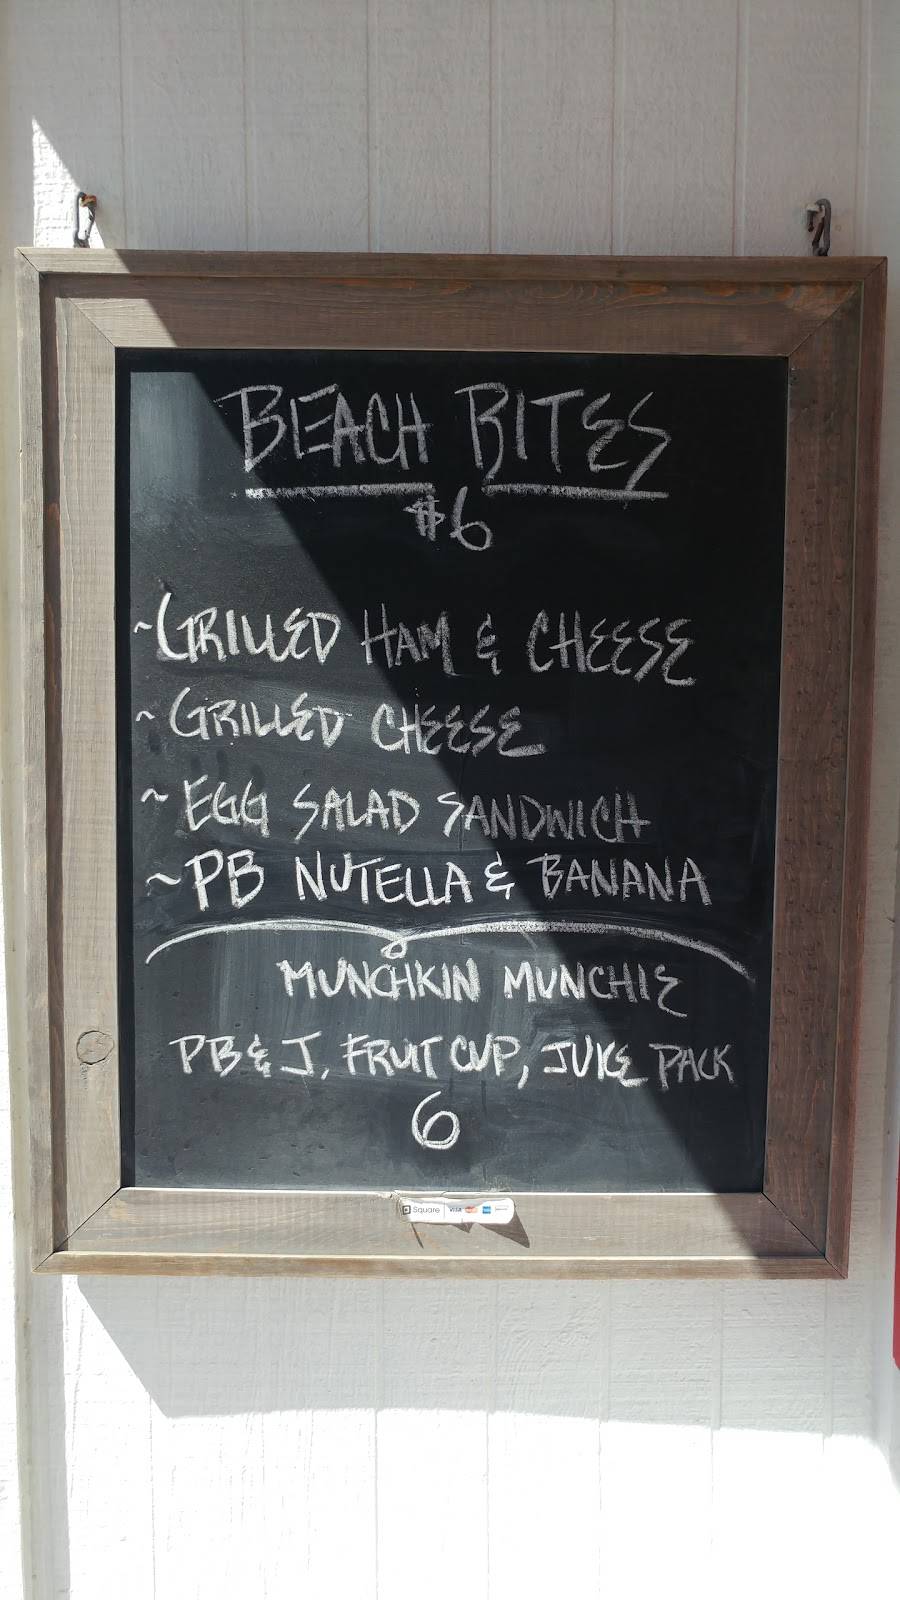 BEACH BITES
$6
~GRILLED HAM & CHEESE
~ GRILLED CHEESE
~ EGG SALAD SANDWICH
~ PB NUTELLA & BANANA
MUNCHKIN MUNCHIE
PB & J, FRUIT CUP, JUICE PACK
6
Square VISA